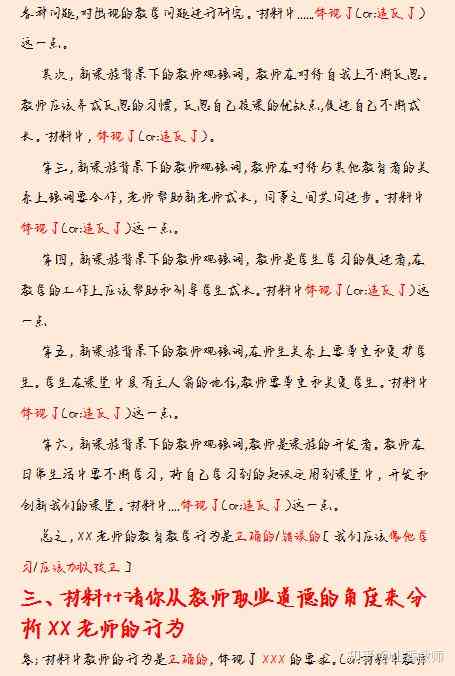 各种问题,对出现的教学问题进行研究。材料中......体现了(or:违反了)
这一点。
其次，新课程背景下的教师观强调，教师在对待自我上不断反思。
教师应该养成反思的习惯，反思自己授课的优缺点,促进自己不断成
长。材料中，体现了(or:违反了)。
第三，新课程背景下的教师观强调,教师在对待与其他教育者的关
系上强调要合作，老师帮助新老师成长，同事之间共同进步。材料中
体现了(or:违反了)这一点。
第四，新课程背景下的教师观强调，教师是学生学习的促进者,在
教学的工作上应该帮助和引导学生成长。材料中体现了(or:违反了)这
一点
第五，新课程背景下的教师观强调,在师生关系上要尊重和爱护学
生。学生在课堂中具有主人翁的地位,教师要尊重和关爱学生。材料中
体现了(or:违反了)这一点。
第六，新课程背景下的教师观强调,教师是课程的开发者。教师在
日常生活中要不断学习，将自己学习到的知识运用到课堂中，开发和
创新我们的课堂。材料中....体现了(or:违反了)这一点。
总之，XX老师的教育教学行为是正确的/错误的[我们应该像他学
习/应该加以改正]
三、材料++请你从教师职业道德的角度来分
析XX老师的行为
答:材料中教师的行为是正确的，体现了XXX的要求。(or:材料中教师